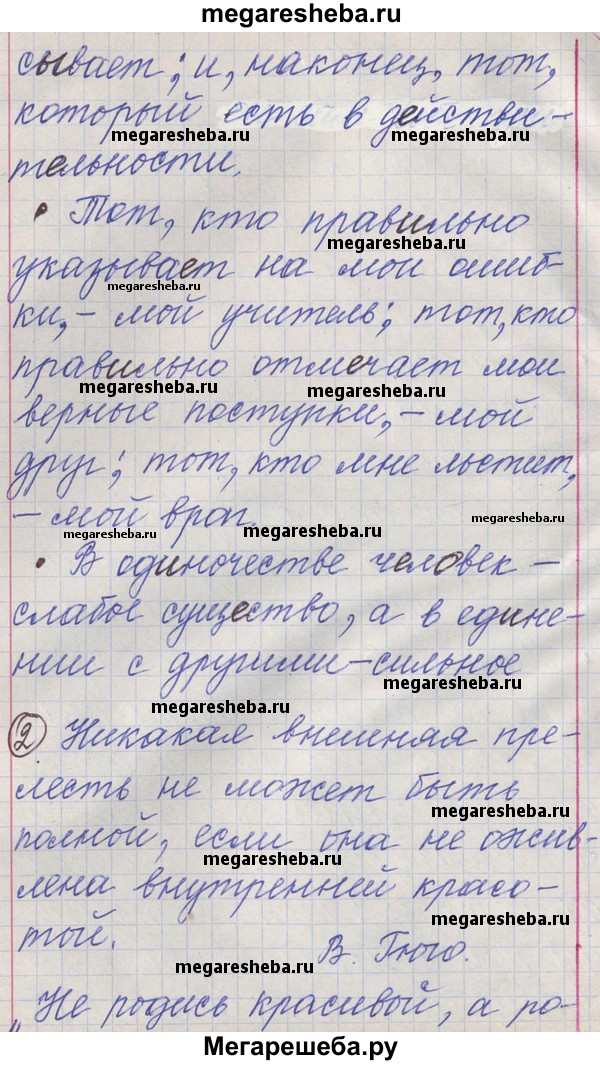 megaresheba.ru
сывает; и, наконец, тот,
megaresheba.ru
который есть в действи-
megaresheba.ru
megaresheba.ru
тельности.
• Тот, кто правильно
megaresheba.ru
указывает на мои ошиб-
megaresheba.ru
ки,- мой учитель; тот, кто
правильно отмечает мои
megaresheba.ru
megaresheba.ru
верные поступки,- мой
друг; тот, кто мне льстит,
- мой враг.
megaresheba.ru
megaresheba.ru
megaresheba.ru
• В одиночестве человек -
слабое существо, а в едине-
нии с другими-сильное
megaresheba.ru
megaresheba.ru
2 Никакая внешняя пре-
лесть не может быть
megaresheba.ru
полной, если она не ожив-
megaresheba.ru
лена внутренней красо-
megaresheba.ru
той.
В. Гюго.
megaresheba.ru
„Не родись красивой, а ро-
megaresheba.ru
Мегарешеба.ру